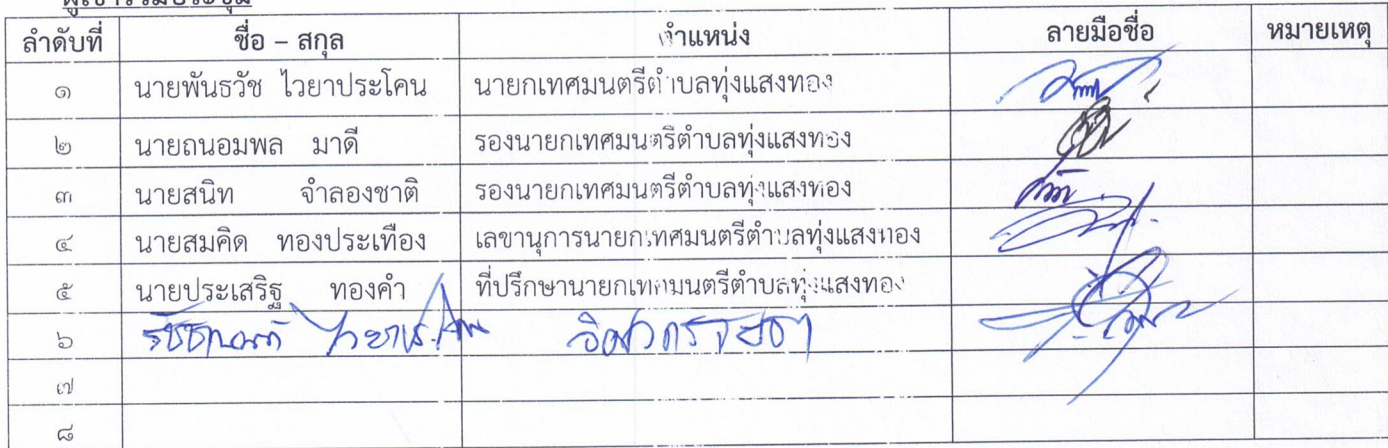 ผู้เข้าร่วมประชุม
ลำดับที่ ชื่อ – สกุล ตำแหน่ง ลายมือชื่อ หมายเหตุ
๑ นายพันธวัช ไวยาประโคน นายกเทศมนตรีตำบลทุ่งแสงทอง
๒ นายถนอมพล มาดี รองนายกเทศมนตรีตำบลทุ่งแสงทอง
๓ นายสนิท จำลองชาติ รองนายกเทศมนตรีตำบลทุ่งแสงทอง
๔ นายสมคิด ทองประเทือง เลขานุการนายกเทศมนตรีตำบลทุ่งแสงทอง
๕ นายประเสริฐ ทองคำ ที่ปรึกษานายกเทศมนตรีตำบลทุ่งแสงทอง
๖
๗
๘